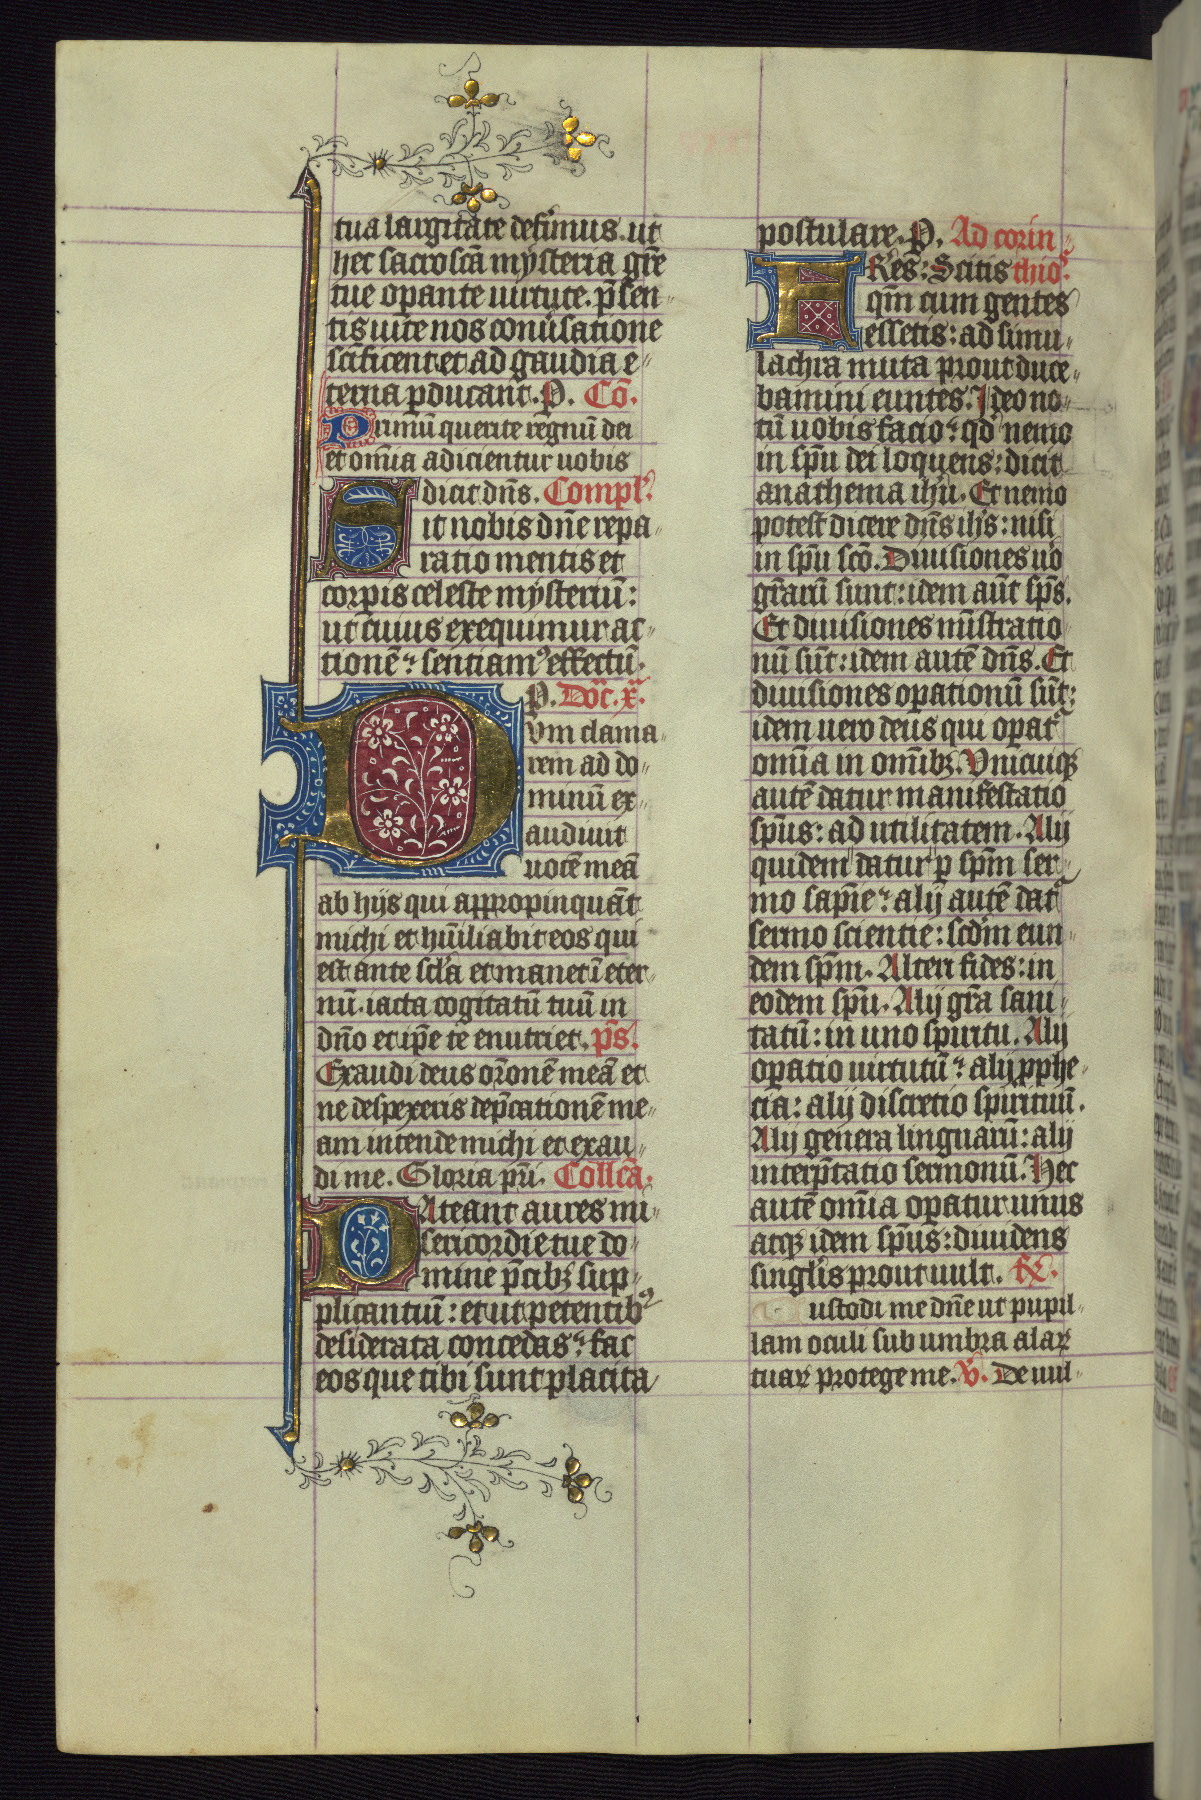 tua largitate deferimus. ut
hec sacroscā mysteria gr̄e
tue opante uirtute. p̄sen
tis uite nos conūsatione
scificent et ad gaudia e
terna pducant. P. Cō.
Primū querite regnū dei
et om̄ia adicientur uobis
dicit dn̄s. Compl'.
Sit nobis dn̄e repa
ratio mentis et
corpis celeste mysteriū:
ut cuius exequimur ac
tionē: sentiam⁹ effectū.
P. Dōc. x.
Dvm clama
rem ad do
minū ex
audiuit
uocē meā
ab hijs qui appropinquāt
michi et hūiliabit eos qui
est ante scl'a et manet ī eter
nū. iacta cogitatū tuū in
dn̄o et ip̄e te enutriet. p̄s.
Exaudi deus or̄onē meā et
ne despexeris dep̄cationē me
am intende michi et exau
di me. Gloria pr̄i. Coll̄cā.
PAteant aures mi
sericordie tue do
mine p̄cibꝫ sup
plicantiū: et ut petentib⁹
desiderata concedas: fac
eos que tibi sunt placita
postulare. P. Ad corin
FRēs: Scitis thio⁹.
qm̄ cum gentes
essetis: ad simu
lachra muta prout duce
bamini euntes. Ideo no
tū uobis facio: qd nemo
in sp̄u dei loquens: dicit
anathema ihū. Et nemo
potest dicere dn̄s ih̄s: nisi
in sp̄u scō. Diuisiones uō
gr̄arū sunt: idem aūt sp̄s.
Et diuisiones mīstratio
nū sūt: idem autē dn̄s. Et
diuisiones opationū sūt:
idem uero deus qui opat'
om̄ia in om̄ibꝫ. Vnicuiqꝫ
autē datur manifestatio
sp̄us: ad utilitatem. Alij
quidem datur p sp̄m ser
mo sapīe: alij autē dat'
sermo scientie: scd̄m eun
dem sp̄m. Alteri fides: in
eodem sp̄u. Alij gr̄a sani
tatū: in uno spiritu. Alij
opatio uirtutū: alij pphe
cīa: alij discretio spirituū.
Alij genera linguarū: alij
interp̄tatio sermonū. Hec
autē om̄ia opatur unus
atqꝫ idem sp̄us: diuidens
singl'is prout uult. Gͬ.
ustodi me dn̄e ut pupil
lam oculi sub umbra alaꝝ
tuaꝝ protege me. V. De uul